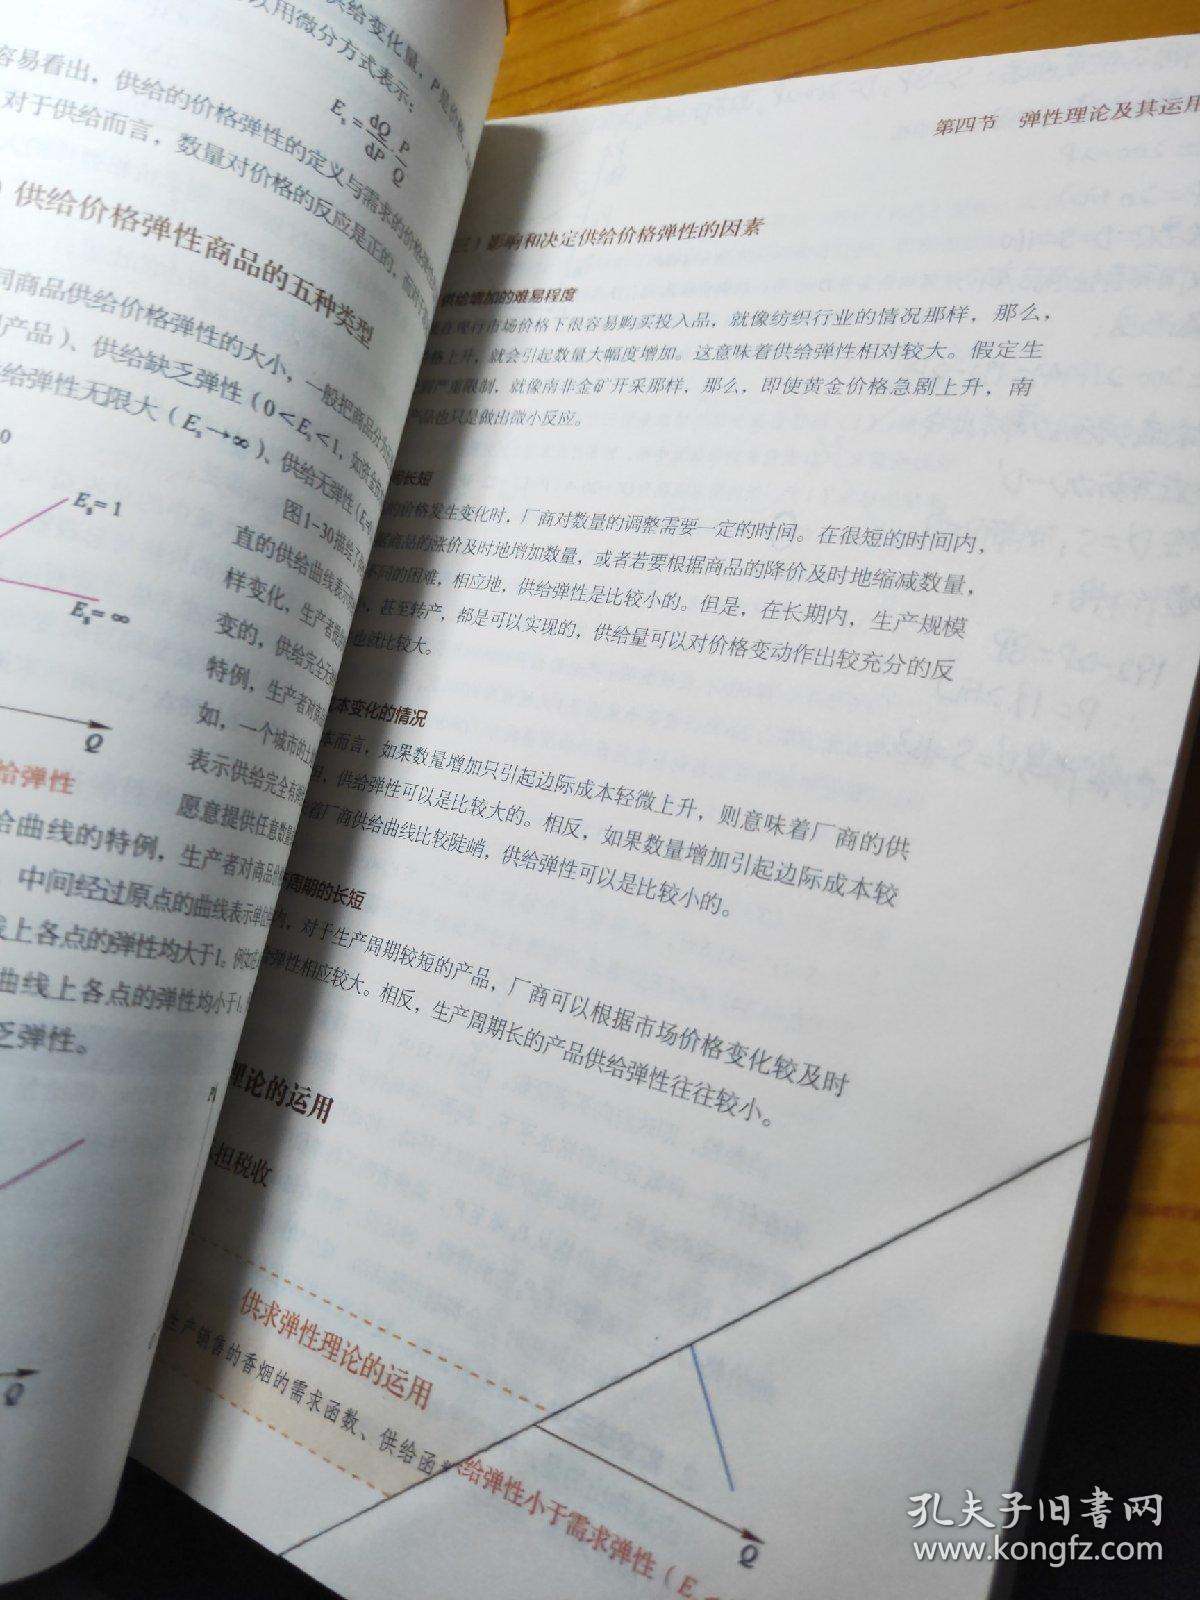 供给变化量，P是价格
以用微分方式表示：
E_s = dQ/dP · P/Q
容易看出，供给的价格弹性的定义与需求的价格弹性
对于供给而言，数量对价格的反应是正的，而对于
）供给价格弹性商品的五种类型
同商品供给价格弹性的大小，一般把商品分为
产品）、供给缺乏弹性（0＜E_s＜1，如资金
给弹性无限大（E_s→∞）、供给无弹性（E_s=0
0
E_s＝1
E_s＝∞
Q
给弹性
图1-30描绘了
直的供给曲线表示
样变化，生产者
变的，供给完全无
特例，生产者对
如，一个城市的土
表示供给完全有
愿意提供任意数量
给曲线的特例，生产者对商品
中间经过原点的曲线表示单位
线上各点的弹性均大于1。例如
曲线上各点的弹性均小于1，
乏弹性。
P
Q
第四节　弹性理论及其运用
三）影响和决定供给价格弹性的因素
供给增加的难易程度
在现行市场价格下很容易购买投入品，就像纺织行业的情况那样，那么，
格上升，就会引起数量大幅度增加。这意味着供给弹性相对较大。假定生
到严重限制，就像南非金矿开采那样，那么，即使黄金价格急剧上升，南
产品也只是做出微小反应。
间长短
的价格发生变化时，厂商对数量的调整需要一定的时间。在很短的时间内，
据商品的涨价及时地增加数量，或者若要根据商品的降价及时地缩减数量，
不同的困难，相应地，供给弹性是比较小的。但是，在长期内，生产规模
小，甚至转产，都是可以实现的，供给量可以对价格变动作出较充分的反
也就比较大。
本变化的情况
本而言，如果数量增加只引起边际成本轻微上升，则意味着厂商的供
坦，供给弹性可以是比较大的。相反，如果数量增加引起边际成本较
着厂商供给曲线比较陡峭，供给弹性可以是比较小的。
周期的长短
内，对于生产周期较短的产品，厂商可以根据市场价格变化较及时
弹性相应较大。相反，生产周期长的产品供给弹性往往较小。
理论的运用
承担税收
供求弹性理论的运用
生产销售的香烟的需求函数、供给函
给弹性小于需求弹性（E
Q
孔夫子旧书网
www.kongfz.com